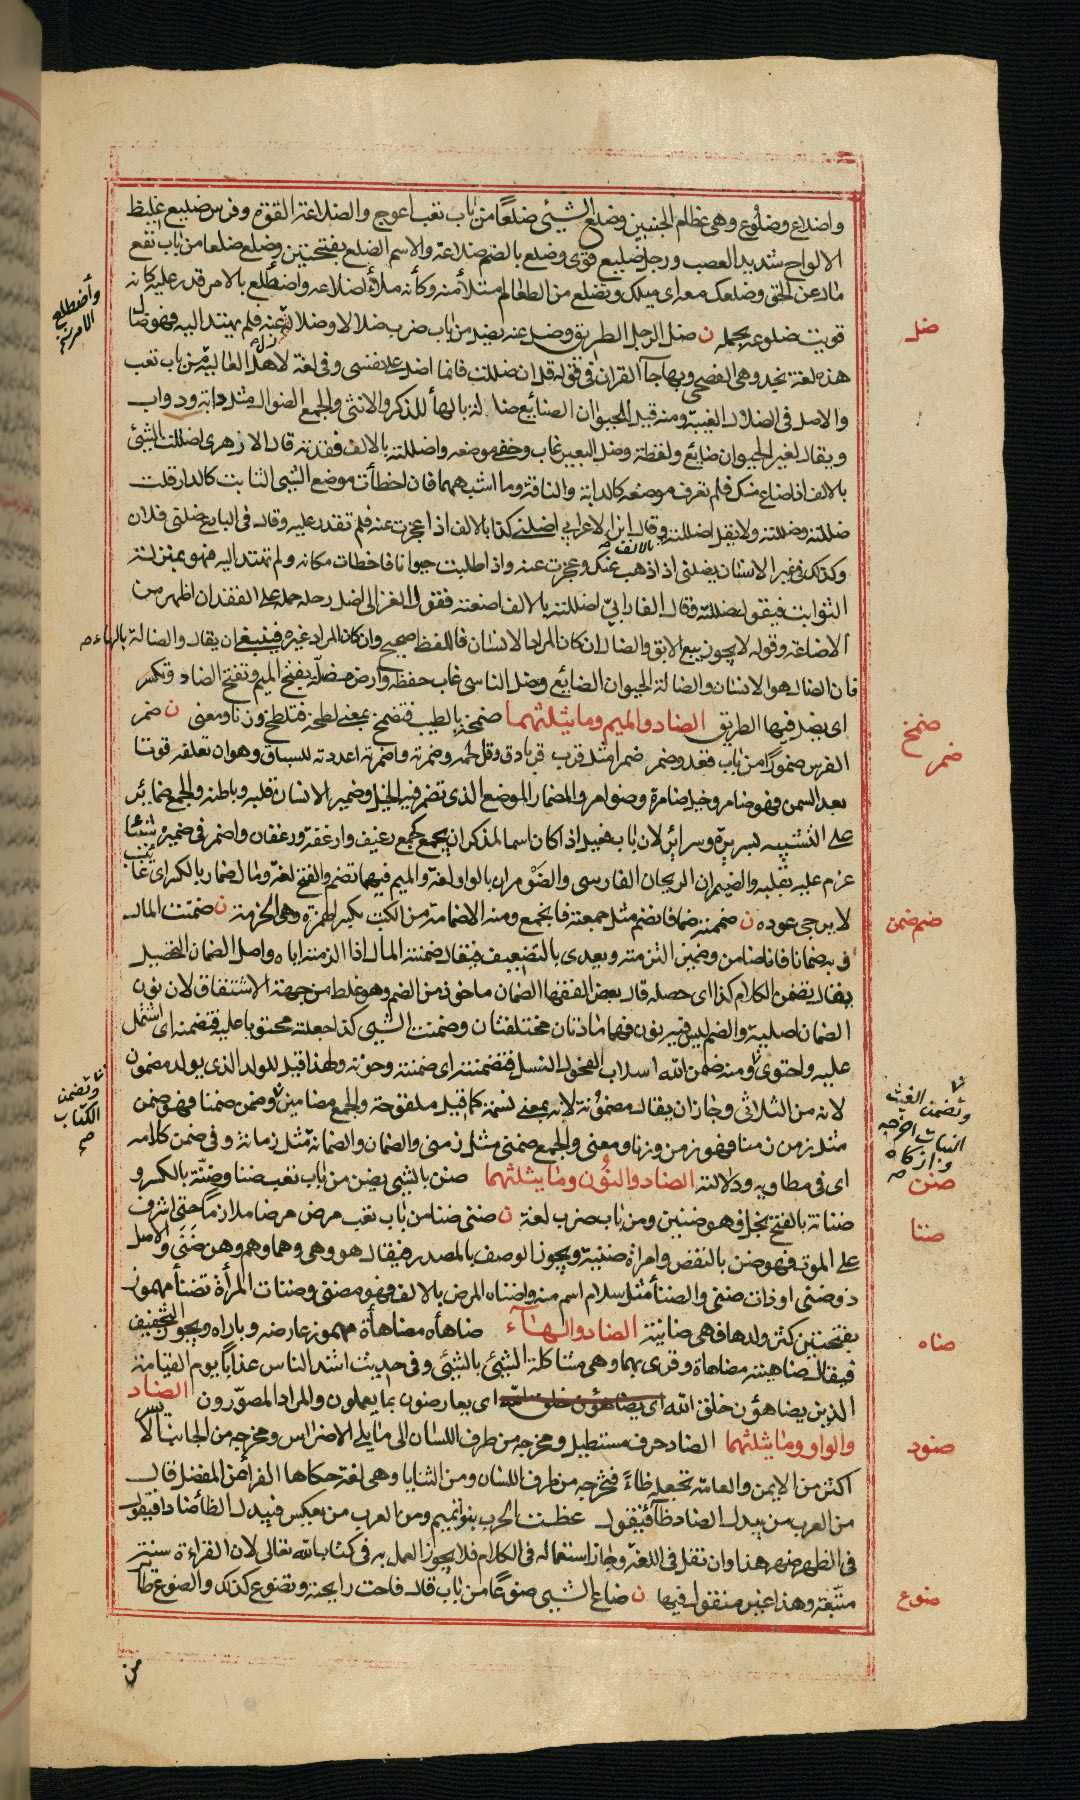 واضلاع وضلوع وهي عظام الجنبين وضلع الشيئ ضلعًا من باب تعب اعوج والضلاعة القوة وفرس ضليع غليظ
الالواح شديد العصب ورجل ضليع قوى وضلع بالضم ضلاعة والاسم الضلع بفتحتين وضلع ضلعا من باب نفع
مال عن الحق وضلعك معه اى ميلك وتضلع من الطعام امتلأ منه وكأنه ملأ اضلاعه واضطلع بالامر قدر عليه كانه
قويت ضلوعه بحمله ن ضل الرجل الطريق وضل عنه يضل من باب ضرب ضلالا وضلالة زل عنه فلم يهتد اليه فهو ضال
هذه لغة نجد وهى الفصحى وبها جآ القرآن فى قوله قل ان ضللت فانما اضل على نفسى وفى لغة لاهل العالية من باب تعب
والاصل فى الضلال الغيبة ومنه قيل للحيوان الضائع ضالة بالهأ للذكر والانثى والجمع الضوال مثل دابة ودواب
ويقال لغير الحيوان ضائع ولقطة وضل البعير غاب وخفى موضعه واضللته بالالف فقدته قال الازهرى اضللت الشيئ
بالالف اذا ضاع منك فلم تعرف موضعه كالدابة والناقة وما اشبههما فان اخطأت موضع الشيى الثابت كالدار قلت
ضللته وضللته ولا يقل اضللته بالالف وقال ابن الاعرابي اضلنى كذا بالالف اذا عجزت عنه فلم تقدر عليه وقال فى البارع ضلنى فلان
وكذلك فى غير الانسان يضلنى اذا ذهب عنك وعجزت عنه واذا طلبت حيوانا فاخطات مكانه ولم تهتد اليه فهو بمنزلة
الثوابت فيقول ضللته وقال الفارابي اضللته بالالف اضعته فقول الغزالى اضل رحله حمله على الفقدان اظهر من
الاضاعة وقوله لا يجوز بيع الآبق والضال ان كان المراد الانسان فاللفظ صحيح وان كان المراد غيره فينبغى ان يقال والضالة بالهاء صح
فان الضال هو الانسان والضالة الحيوان الضائع وضل الناسى غاب حفظه وارض مضلة بفتح الميم وتفتح الضاد وتكسر
اى يضل فيها الطريق الضاد والميم وما يثلثهما ضمخه بالطيب فتضمخ بمعنى لطخه فتلطخ وزنا ومعنى ن ضمر
الفرس ضمورًا من باب قعد وضمر ضمرا مثل قرب قربا دق وقل لحمه وضمرته واضمرته اعددته للسباق وهو ان تعلفه قوتا
بعد السمن فهو ضامر وخيل ضامرة وضوامر والمضمار الموضع الذى تضمر فيه الخيل وضمير الانسان قلبه وباطنه والجمع ضمائر
على التشبيه بسريرة وسرائر لان باب فعيل اذا كان اسما لمذكر ان يجمع كجمع رغيف وارغفة ورغفان واضمر فى ضميره شيئا
عزم عليه بقلبه والضيمران الريحان الفارسى والضَوْمران بالواو لغة والميم فيهما تضم والفتح لغة ومال ضمار بالكسر اى غائب
لا يرجى عوده ن ضممته ضما فانضم مثل جمعته فانجمع ومنه الاضمامة من الكتب بكسر الهمزة وهى الحزمة ن ضمنت المال
وبه ضمانا فانا ضامن وضمين التزمته ويعدى بالتضعيف فيقال ضمنته المال اذا الزمته اياه واصل الضمان التحصيل
يقال تضمن الكلام كذا اى حصله قال بعض الفقها الضمان ماخوذ من الضم وهو غلط من جهة الاشتقاق لان نون
الضمان اصلية والضم ليس فيه نون فهما مادتان مختلفتان وضمنت الشيى كذا جعلته محتويا عليه فتضمنه اى اشتمل
عليه واحتوى ومنه ضمن الله اسلاب الفحول النسل فتضمنته اى ضمنته وحوته ولهذا قيل للولد الذى يولد مضمون
لانه من الثلاثى وجاز ان يقال مضمونة لانه بمعنى نسمة كما قيل ملقوحة والجمع مضامين وضمن ضمنا فهو ضمن
مثل زمن زمنا فهو زمن وزنا ومعنى والجمع ضمنى مثل زمنى والضمان والضمانة مثل زمانة وفى ضمن كلامه
اى فى مطاويه ودلالته الضاد والنون وما يثلثهما ضنن بالشيى يضن من باب تعب ضنا وضنّة بالكسر و
ضنانة بالفتح بخل فهو ضنين ومن باب ضرب لغة ن ضنى ضنا من باب تعب مرض مرضا ملازما حتى اشرف
على الموت فهو ضن بالنقص وامراة ضنية ويجوز الوصف بالمصدر فيقال هو وهى وهما وهم وهن ضنى والاصل
ذو ضنى او ذات ضنى والضنأ مثل سلام اسم منه واضناه المرض بالالف فهو مضنى وضنات المرأة تضنأ مهموز
بفتحتين كثر ولدها فهى ضانية الضاد والهاء ضاهأه مضاهأة مهموز عارضه وباراه ويجوز التخفيف
فيقال ضاهيته مضاهاة وقرى بهما وهى مشاكلة الشيئ بالشيئ وفى حديث اشد الناس عذابًا يوم القيامة
الذين يضاهؤن خلق الله اى يضاهؤن خلق الله اى يعارضون بما يعملون والمراد المصوّرون الضاد
والواو وما يثلثهما الضاد حرف مستطيل ومخرجه من طرف اللسان الى ما يلى الاضراس ومخرجه من الجانب الايسر
اكثر من الايمن والعامة تجعله ظاءً فتخرجه من طرف اللسان ومن الثنايا وهى لغة حكاها الفرأ عن المفضل قال
من العرب من يبدل الضاد ظآ فيقول عظت الحرب بنو تميم ومن العرب من يعكس فيبدل الظأ ضادا فيقول
فى الظهر ضهر هذا وان نقل فى اللغة وجاز استعماله فى الكلام فلا يجوز العمل به فى كتاب الله تعالى لان القراءة سنة
متبعة وهذا غير منقول فيها ن ضاع الشيى ضوعًا من باب قال فاحت رايحته وتضوع كذلك والضوع طآ
من
واضطلع
الامر
وتضمن
الكتاب
صح
ضل
ضمخ
ضمر
ضم ضمن
وتضمن الغيث
النبات اخرجه
وازكاه
صح
ضنن
ضنا
ضاه
ضود
ضوع